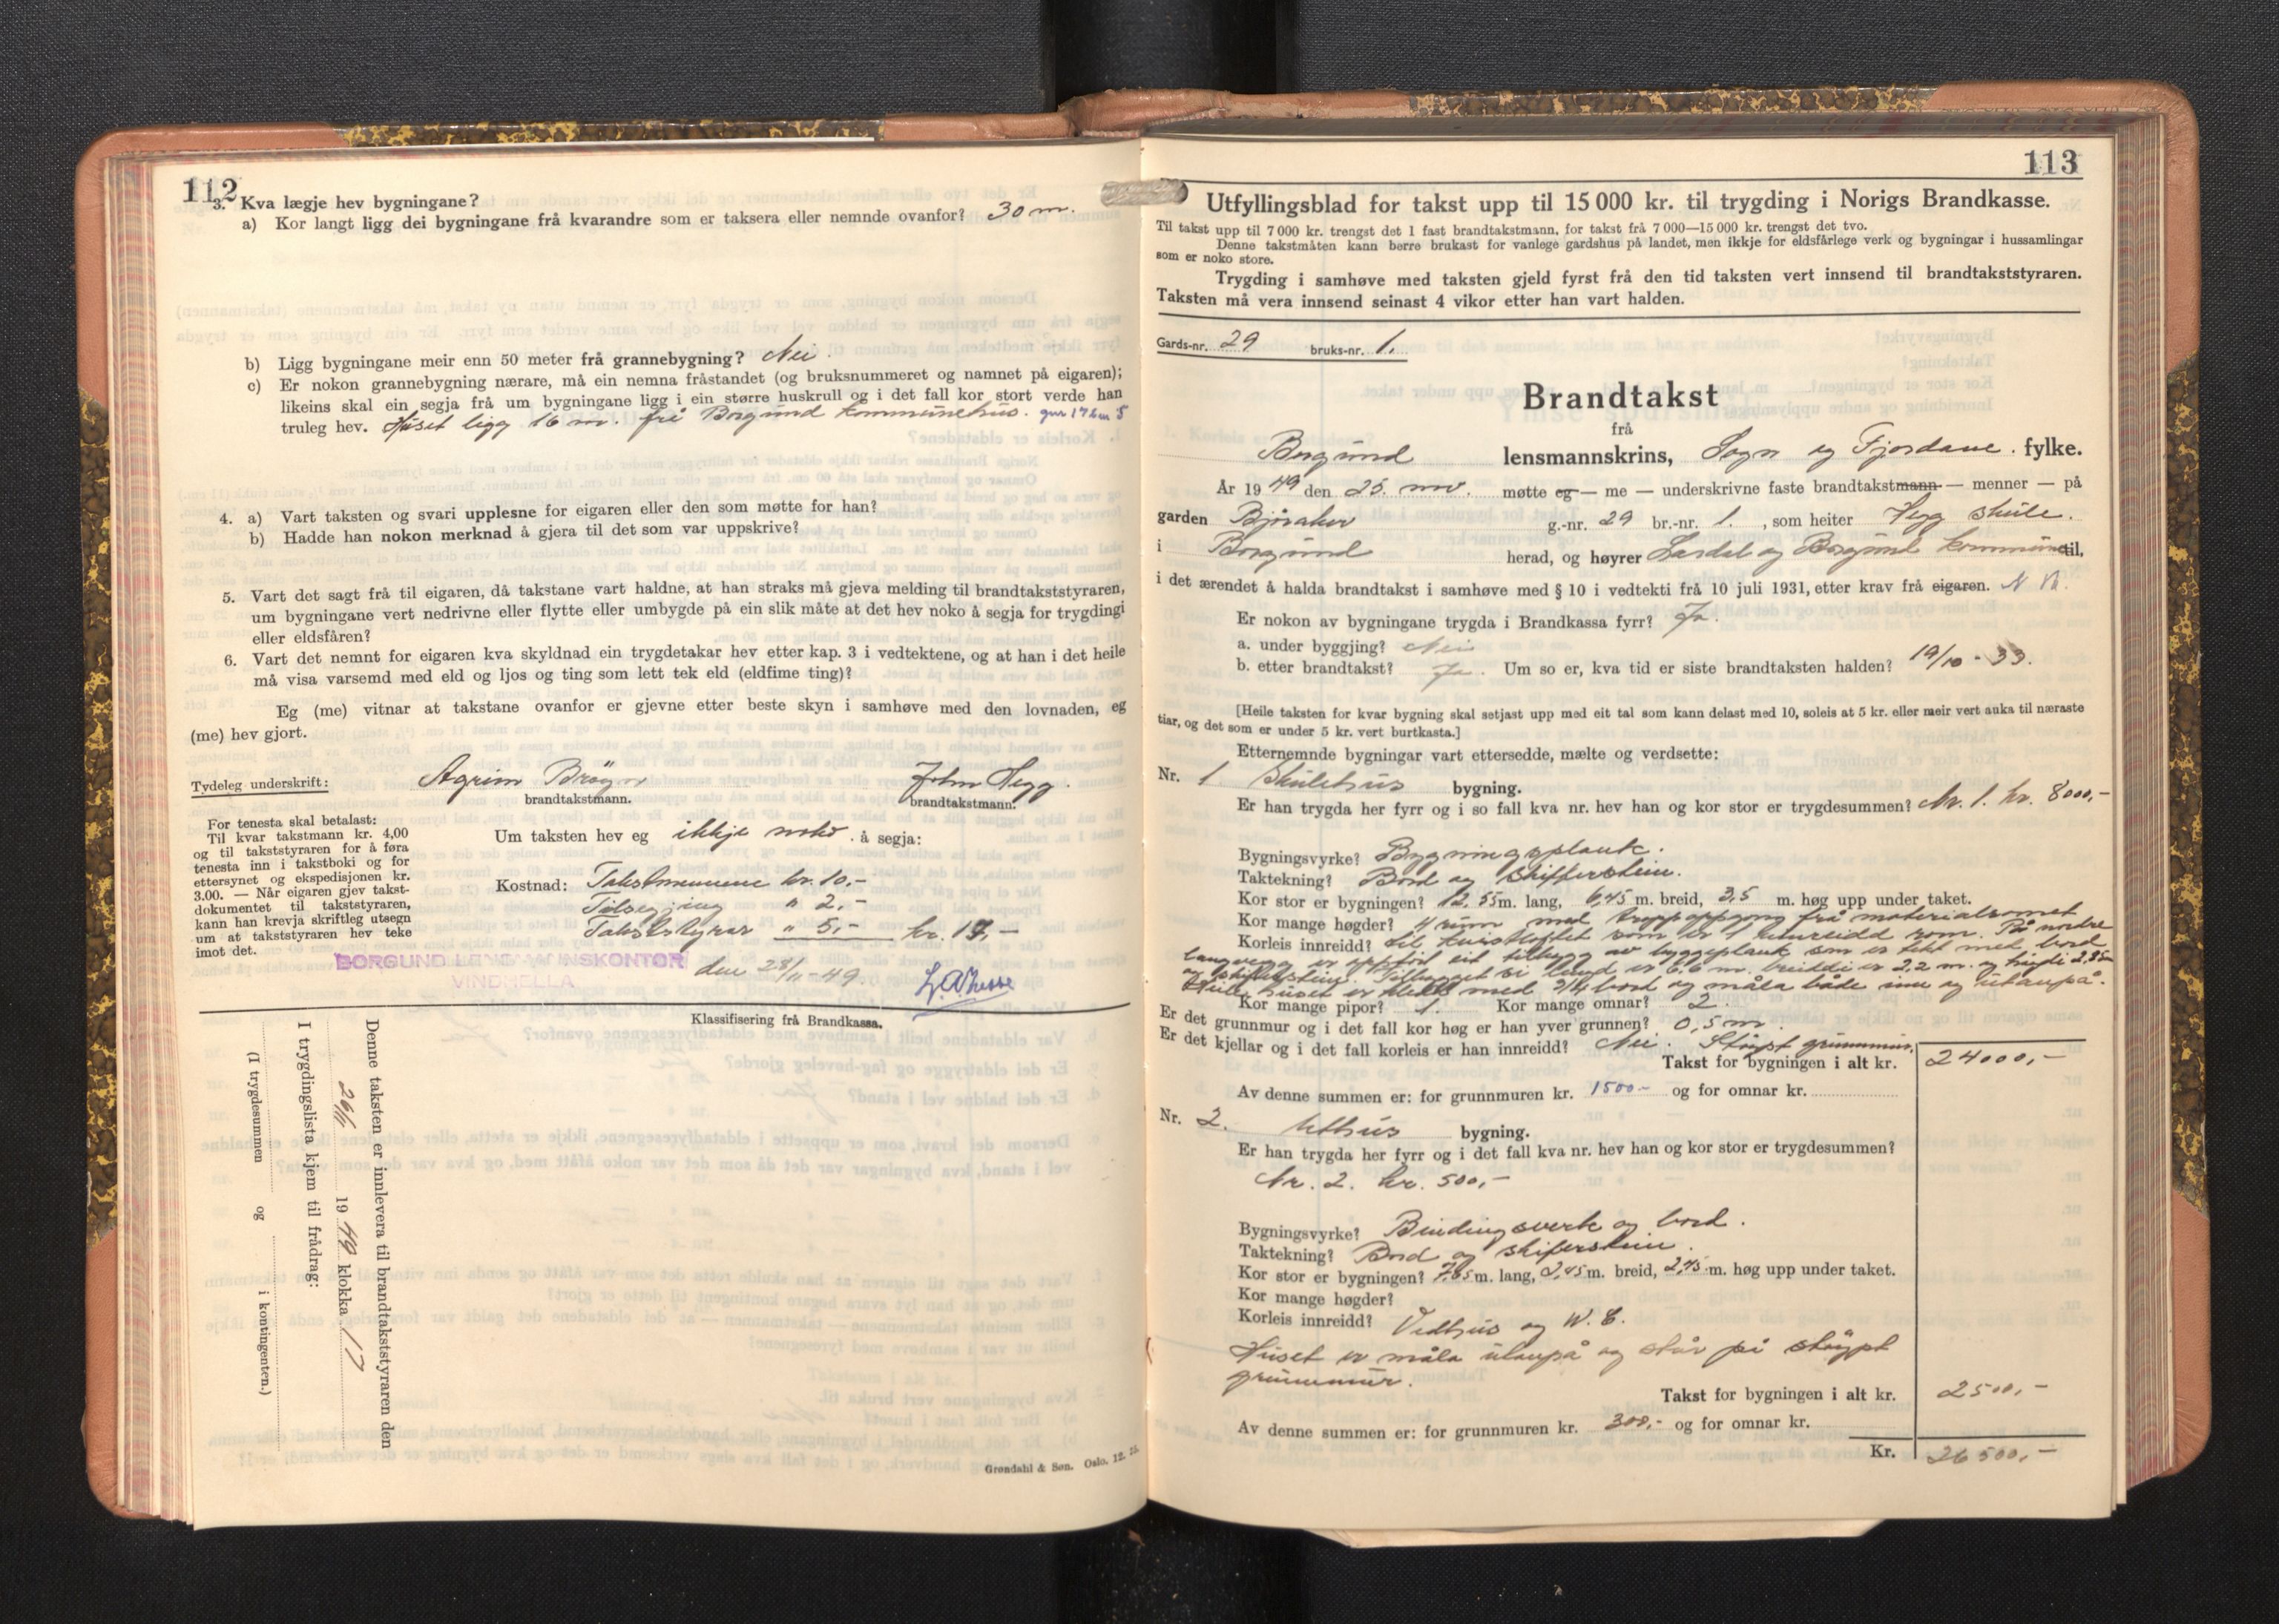 112
3. Kva lægje hev bygningane?
a) Kor langt ligg dei bygningane frå kvarandre som er taksera eller nemnde ovanfor? 30 m.
b) Ligg bygningane meir enn 50 meter frå grannebygning? Nei.
c) Er nokon grannebygning nærare, må ein nemna fråstandet (og bruksnummeret og namnet på eigaren);
likeins skal ein segja frå um bygningane ligg i ein større huskrull og i det fall kor stort verde han
truleg hev. Huset ligg 16 m. frå Borgund kommunehus. gnr 17 bnr 5
4. a) Vart taksten og svari upplesne for eigaren eller den som møtte for han?
b) Hadde han nokon merknad å gjera til det som var uppskrive?
5. Vart det sagt frå til eigaren, då takstane vart haldne, at han straks må gjeva melding til brandtakststyraren,
um bygningane vert nedrivne eller flytte eller umbygde på ein slik måte at det hev noko å segja for trygdingi
eller eldsfåren?
6. Vart det nemnt for eigaren kva skyldnad ein trygdetakar hev etter kap. 3 i vedtektene, og at han i det heile
må visa varsemd med eld og ljos og ting som lett tek eld (eldfime ting)?
Eg (me) vitnar at takstane ovanfor er gjevne etter beste skyn i samhøve med den lovnaden, eg
(me) hev gjort.
Tydeleg underskrift: John Hegg.
brandtakstmann. brandtakstmann.
For tenesta skal betalast:
Til kvar takstmann kr. 4,00
og til takststyraren for å føra
tenesta inn i takstboki og for
ettersynet og ekspedisjonen kr.
3.00. — Når eigaren gjev takst-
dokumentet til takststyraren,
kann han krevja skriftleg utsegn
um at takststyraren hev teke
imot det.
Um taksten hev eg ikkje noko å segja:
Kostnad: Takstmennene kr. 10,-
Tilsegjing " 2,-
Takststyrar " 5,- kr. 17,-
BORGUND LENSMANNSKONTOR
VINDHELLA
den 28/11-49.
Klassifisering frå Brandkassa.
Denne taksten er innlevera til brandtakststyraren den
26/11 1949 klokka 17
I trygdingslista kjem til frådrag:
(I trygdesummen og i kontingenten.)
Grøndahl & Søn. Oslo. 12.
113
Utfyllingsblad for takst upp til 15 000 kr. til trygding i Norigs Brandkasse.
Til takst upp til 7 000 kr. trengst det 1 fast brandtakstmann, for takst frå 7 000—15 000 kr. trengst det tvo.
Denne takstmåten kann berre brukast for vanlege gardshus på landet, men ikkje for eldsfårlege verk og bygningar i hussamlingar
som er noko store.
Trygding i samhøve med taksten gjeld fyrst frå den tid taksten vert innsend til brandtakststyraren.
Taksten må vera innsend seinast 4 vikor etter han vart halden.
Gards-nr. 29 bruks-nr. 1.
Brandtakst
frå
Borgund lensmannskrins, Sogn og Fjordane. fylke.
År 1949 den 25. nov. møtte eg — me — underskrivne faste brandtakstmann — menner — på
garden Bjøraker g.-nr. 29 br.-nr. 1. , som heiter Hegg skule.
i Borgund herad, og høyrer Lærdal og Borgund kommune til,
i det ærendet å halda brandtakst i samhøve med § 10 i vedtekti frå 10 juli 1931, etter krav frå eigaren. N. B.
Er nokon av bygningane trygda i Brandkassa fyrr? Ja.
a. under byggjing? Nei
b. etter brandtakst? Ja. Um so er, kva tid er siste brandtaksten halden? 19/10-33.
[Heile taksten for kvar bygning skal setjast upp med eit tal som kann delast med 10, soleis at 5 kr. eller meir vert auka til næraste
tiar, og det som er under 5 kr. vert burtkasta.]
Etternemnde bygningar vart ettersedde, mælte og verdsette:
Nr. 1 Skulehus bygning.
Er han trygda her fyrr og i so fall kva nr. hev han og kor stor er trygdesummen? Nr. 1. kr. 8000,-
Bygningsvyrke? Bygningsplank.
Taktekning? Bord og skifferstein.
Kor stor er bygningen? 12,55 m. lang, 6,45 m. breid, 3,5 m. høg upp under taket.
Kor mange høgder? 4 rum med troppoppgong frå materialromet
Korleis innreidd? til kvistloftet som er 1 innreidd rom. På nordre
langvegg er oppført eit tilbygg av byggeplank som er tekt med bord
og skifferstein. Tilbygget si lengd er 6,6 m. breiddi er 2,2 m. og høgdi 2,85 m
Heile huset er kledd med 3/4 bord og måla både inne og utanpå.
Kor mange pipor? 1. Kor mange omnar? 2.
Er det grunnmur og i det fall kor høg er han yver grunnen? 0,5 m.
Er det kjellar og i det fall korleis er han innreidd? Nei. Støypt grunnmur.
Takst for bygningen i alt kr. 24000,-
Av denne summen er: for grunnmuren kr. 1500- og for omnar kr.
Nr. 2. Uthus bygning.
Er han trygda her fyrr og i det fall kva nr. hev han og kor stor er trygdesummen?
Nr. 2. kr. 500,-
Bygningsvyrke? Bindingsverk og bord.
Taktekning? Bord og skiferstein.
Kor stor er bygningen? 7,65 m. lang, 2,45 m. breid, 2,45 m. høg upp under taket.
Kor mange høgder?
Korleis innreidd? Vedhus og W. C.
Huset er måla utanpå og står på støypt
grunnmur.
Takst for bygningen i alt kr. 2500,-
Av denne summen er: for grunnmuren kr. 300,- og for omnar kr.
Kr. 26500,-